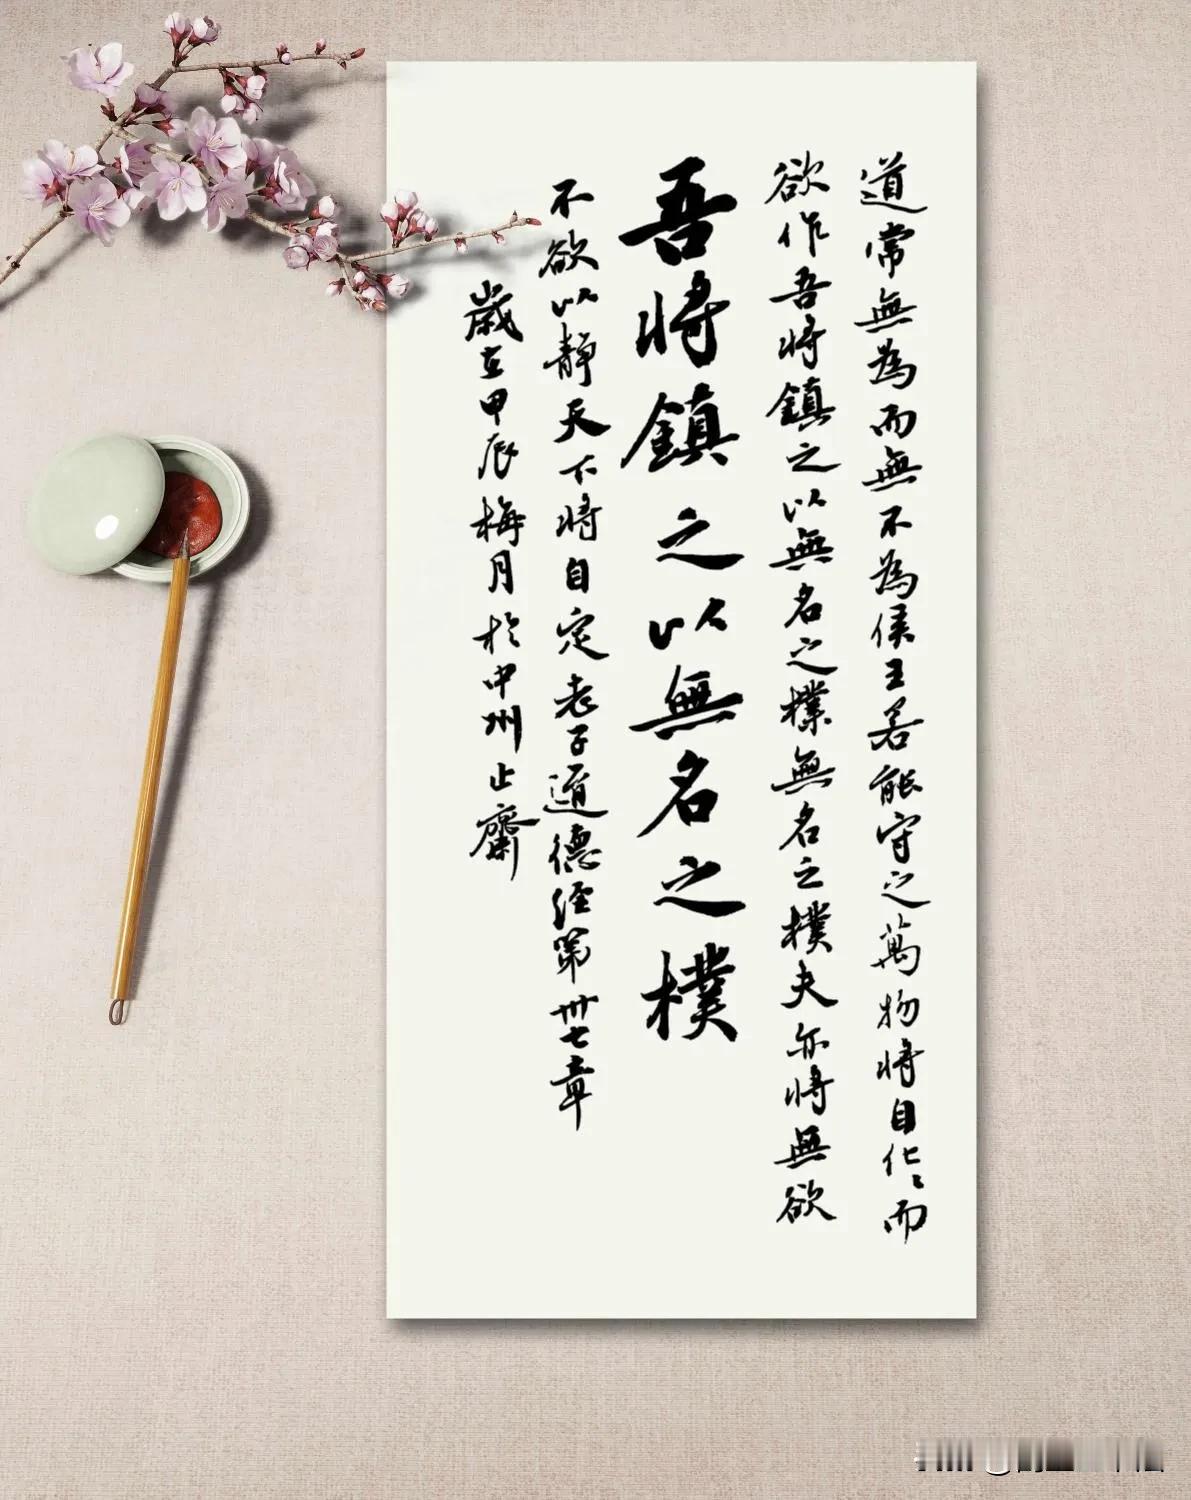 道常無為而無不為侯王若能守之萬物將自化〻而
欲作吾將鎮之以無名之樸無名之樸夫亦將無欲
吾將鎮之以無名之樸
不欲以静天下将自定老子道德经第卅七章
歲在甲辰梅月於中州止齋